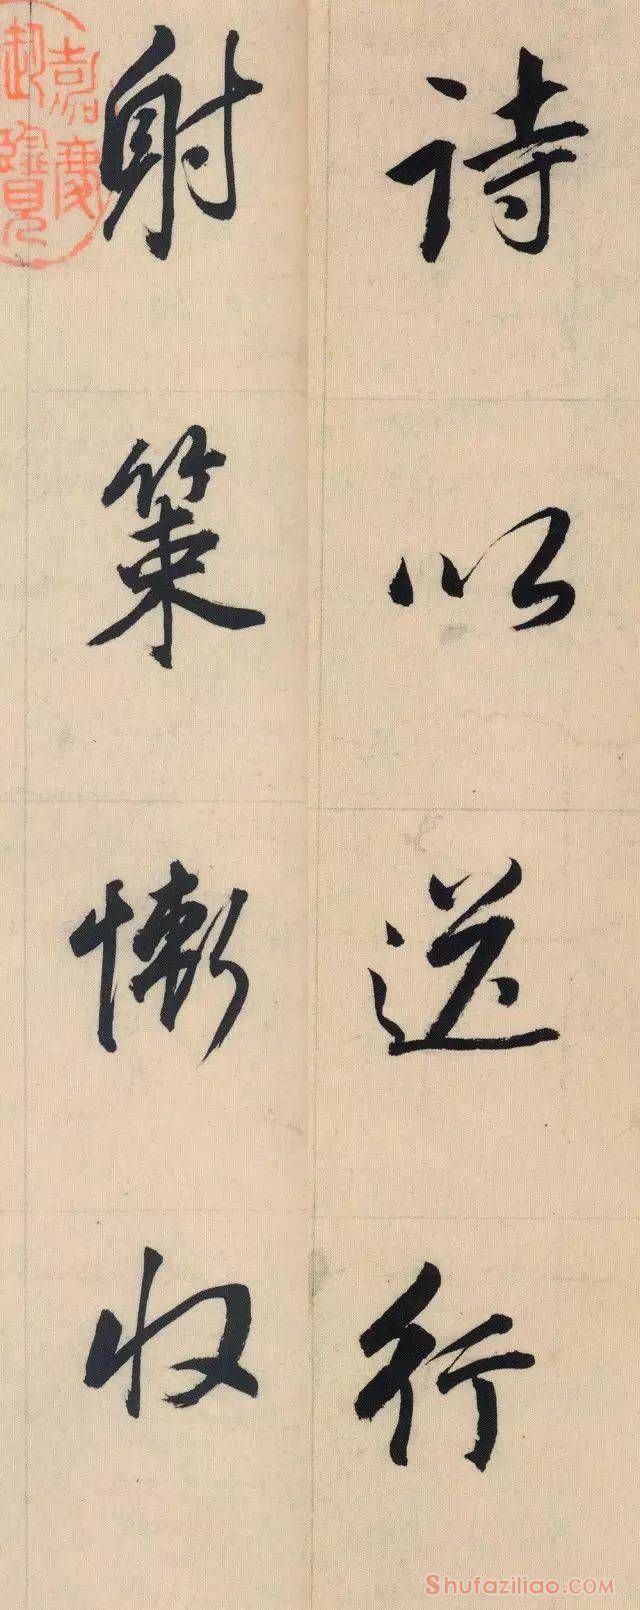 詩以送行
射策慚收
嘉慶
御覽
Shufaziliao.COM